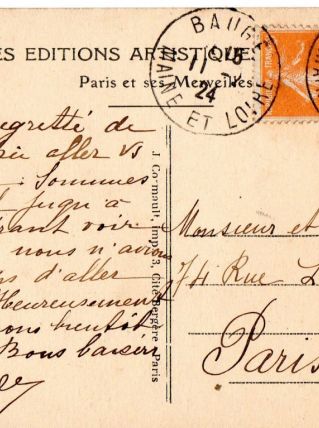 ES EDITIONS ARTISTIQUES
Paris et ses Merveilles
BAUGE
15
24
MAINE ET LOIRE
egretté de
aller vs
Sommes
jusqu'à
voir
nous n'a
s d'aller
Heureusement
ons bientôt
Bons baisers
J. Cormault, Imp.
Cité Bergère, Paris
Monsieur et
74 Rue L
Paris